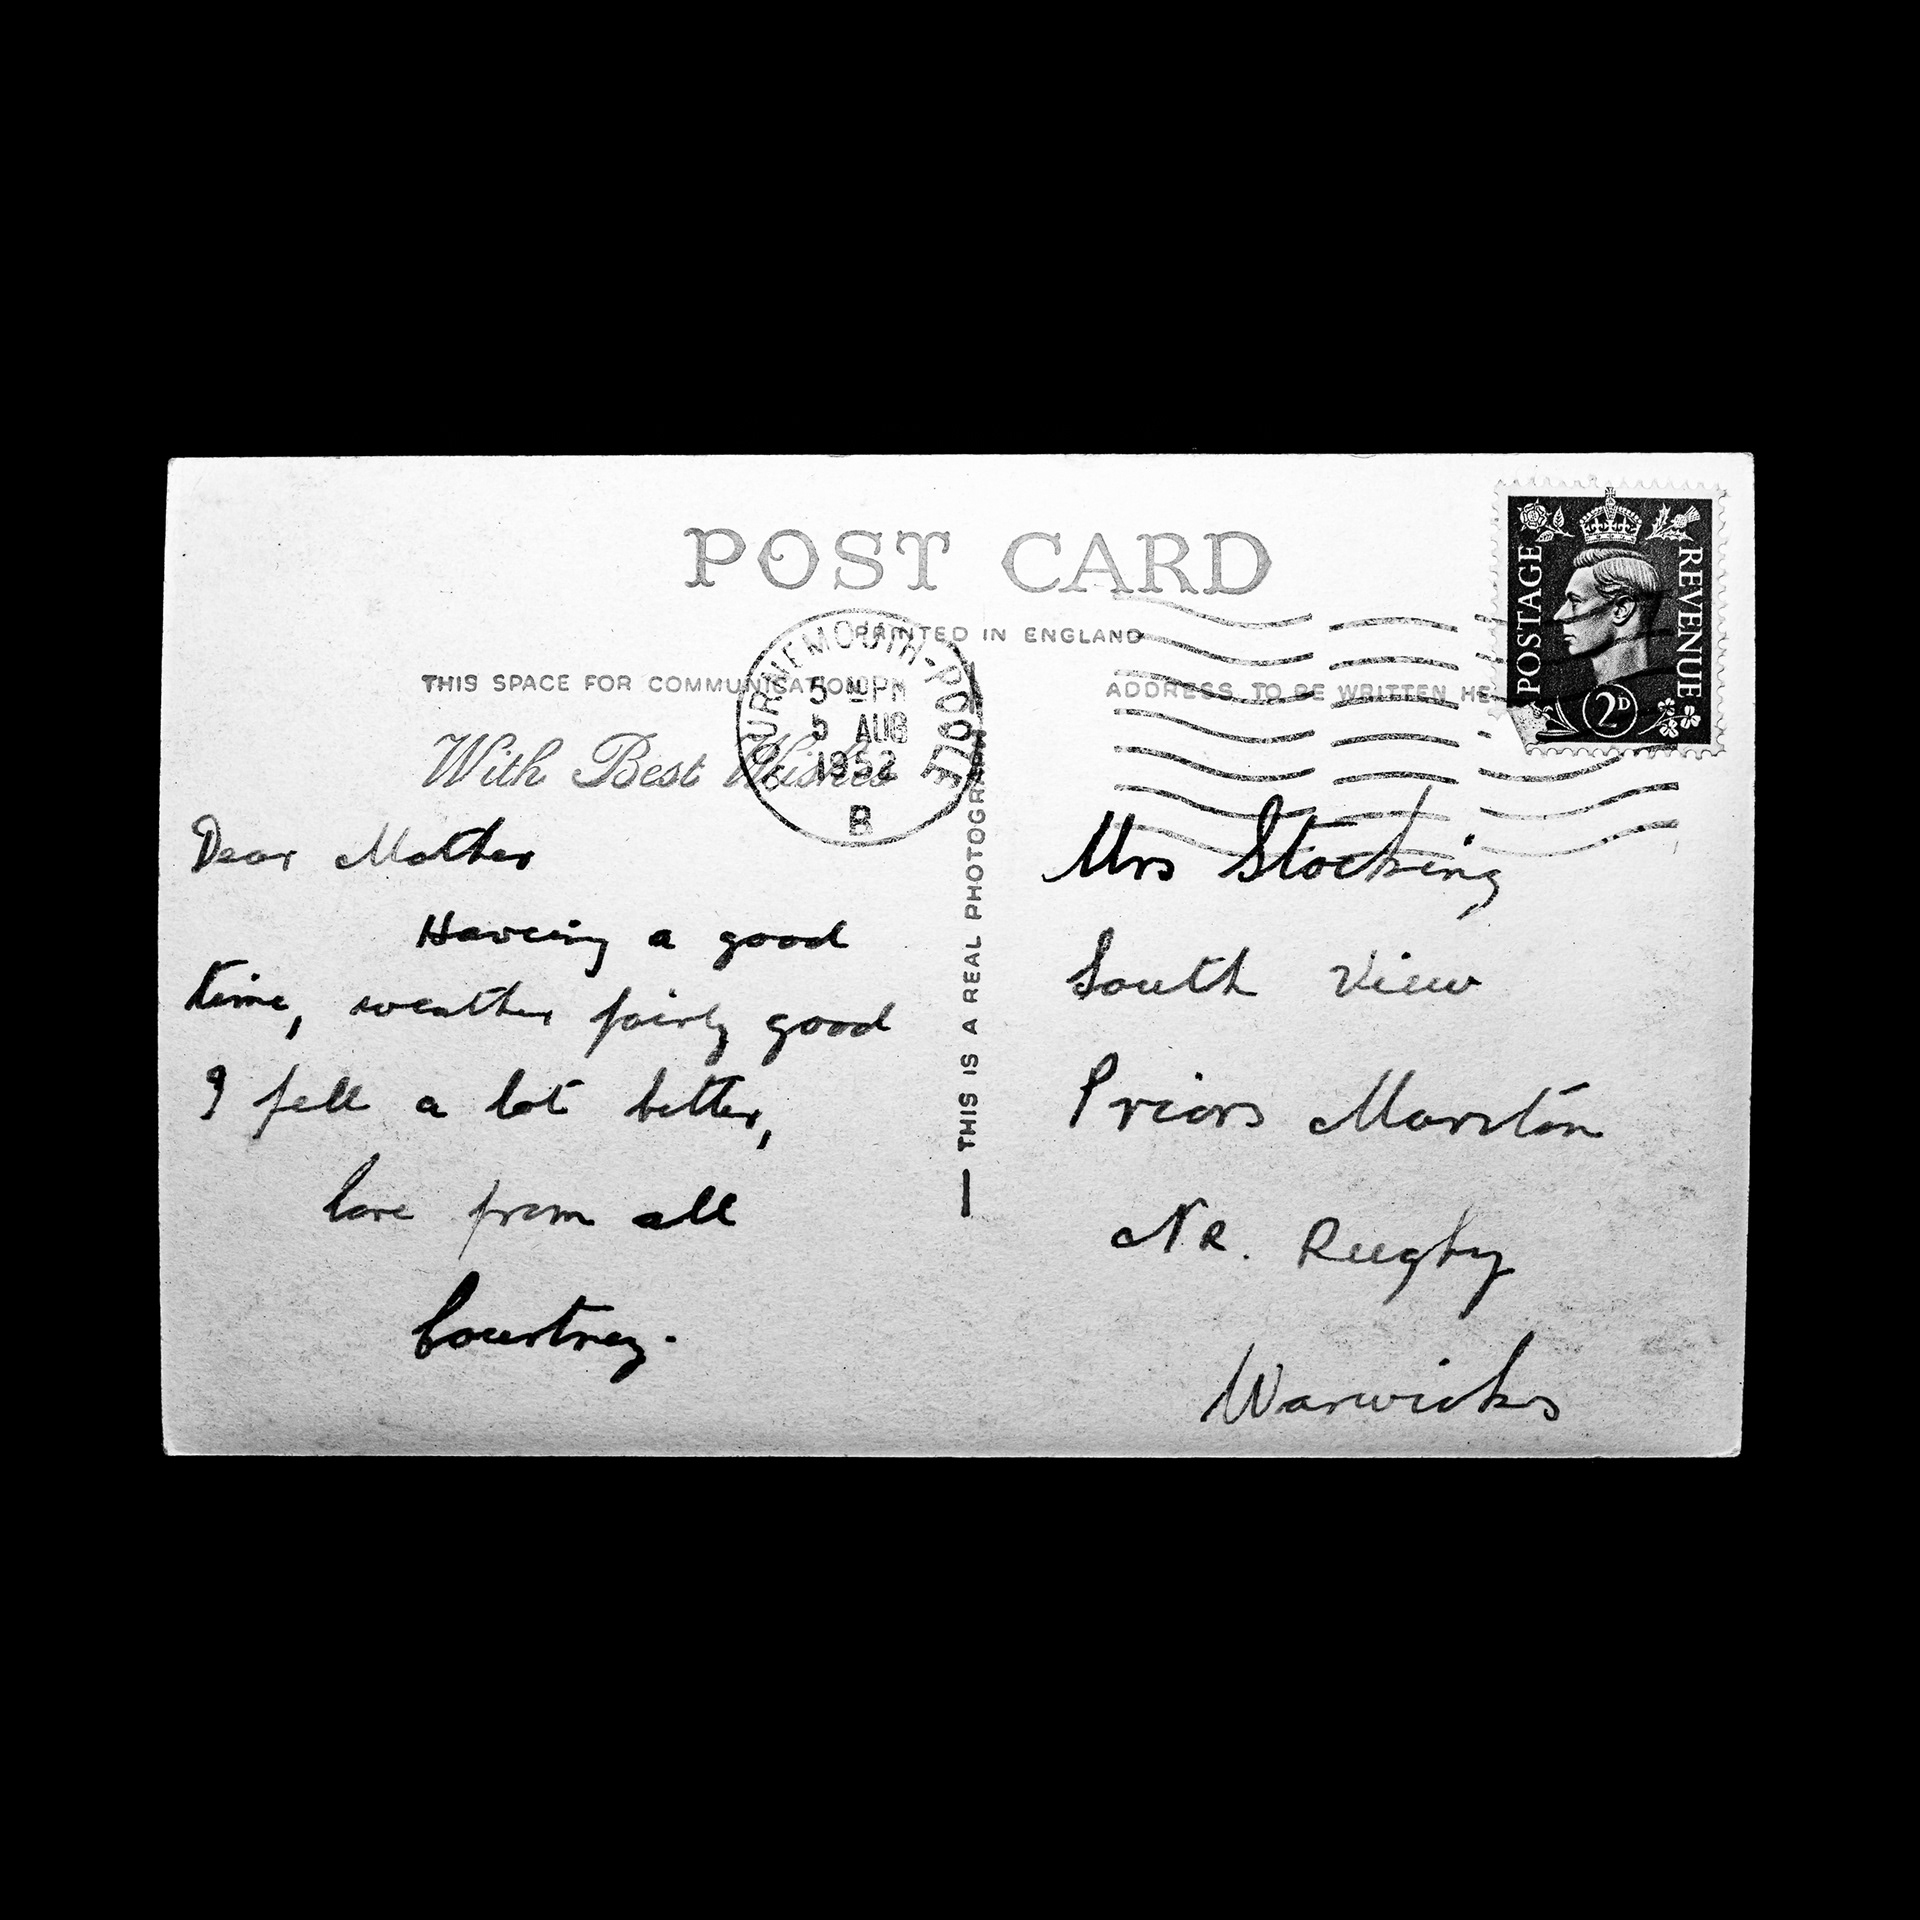 POST CARD
PRINTED IN ENGLAND
THIS SPACE FOR COMMUNICATION
ADDRESS TO BE WRITTEN HE
With Best Wishes
BOURNEMOUTH-POOLE
5 PM
5 AUG
1952
B
POSTAGE
REVENUE
2D
Dear Mother
Having a good
time, weather fairly good
I fell a lot better,
love from all
Courtney.
THIS IS A REAL PHOTOGRAPH
Mrs Stocking
South View
Priors Marston
NR. Rugby
Warwicks